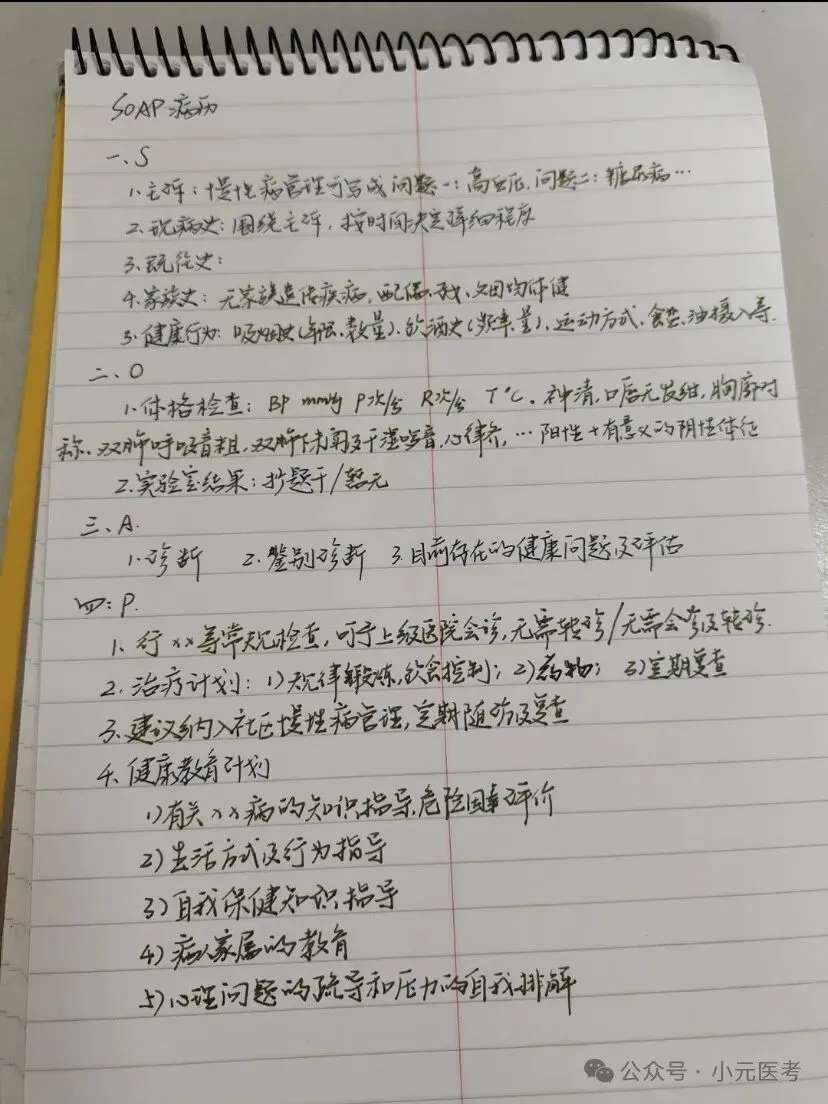 SOAP 病历
一、S
1.主诉：慢性病管理可写成问题一：高血压.问题二：糖尿病…
2.现病史：围绕主诉，按时间决定详细程序
3.既往史：
4.家族史：无家族遗传疾病，配偶、子、父母均体健
5.健康行为：吸烟史(年限、数量)、饮酒史(频率、量)、运动方式、食盐、油摄入等.
二、O
1.体格检查：BP mmHg P次/分 R次/分 T℃。神清，口唇无发绀，胸廓对
称、双肺呼吸音粗，双肺未闻及干湿啰音，心律齐，…阳性+有意义的阴性体征
2.实验室结果：抄题干/暂无
三、A.
1.诊断 2.鉴别诊断 3.目前存在的健康问题及评估
四：P.
1.行××等常规检查，可于上级医院会诊，无需转诊/无需会诊及转诊.
2.治疗计划：1)规律锻炼，饮食控制；2)药物；3)定期复查
3.建议纳入社区慢性病管理，定期随访及复查
4.健康教育计划
1)有关××病的知识指导、危险因素评价
2)生活方式及行为指导
3)自我保健知识指导
4)病人家属的教育
5)心理问题的疏导和压力的自我排解
公众号·小元医考